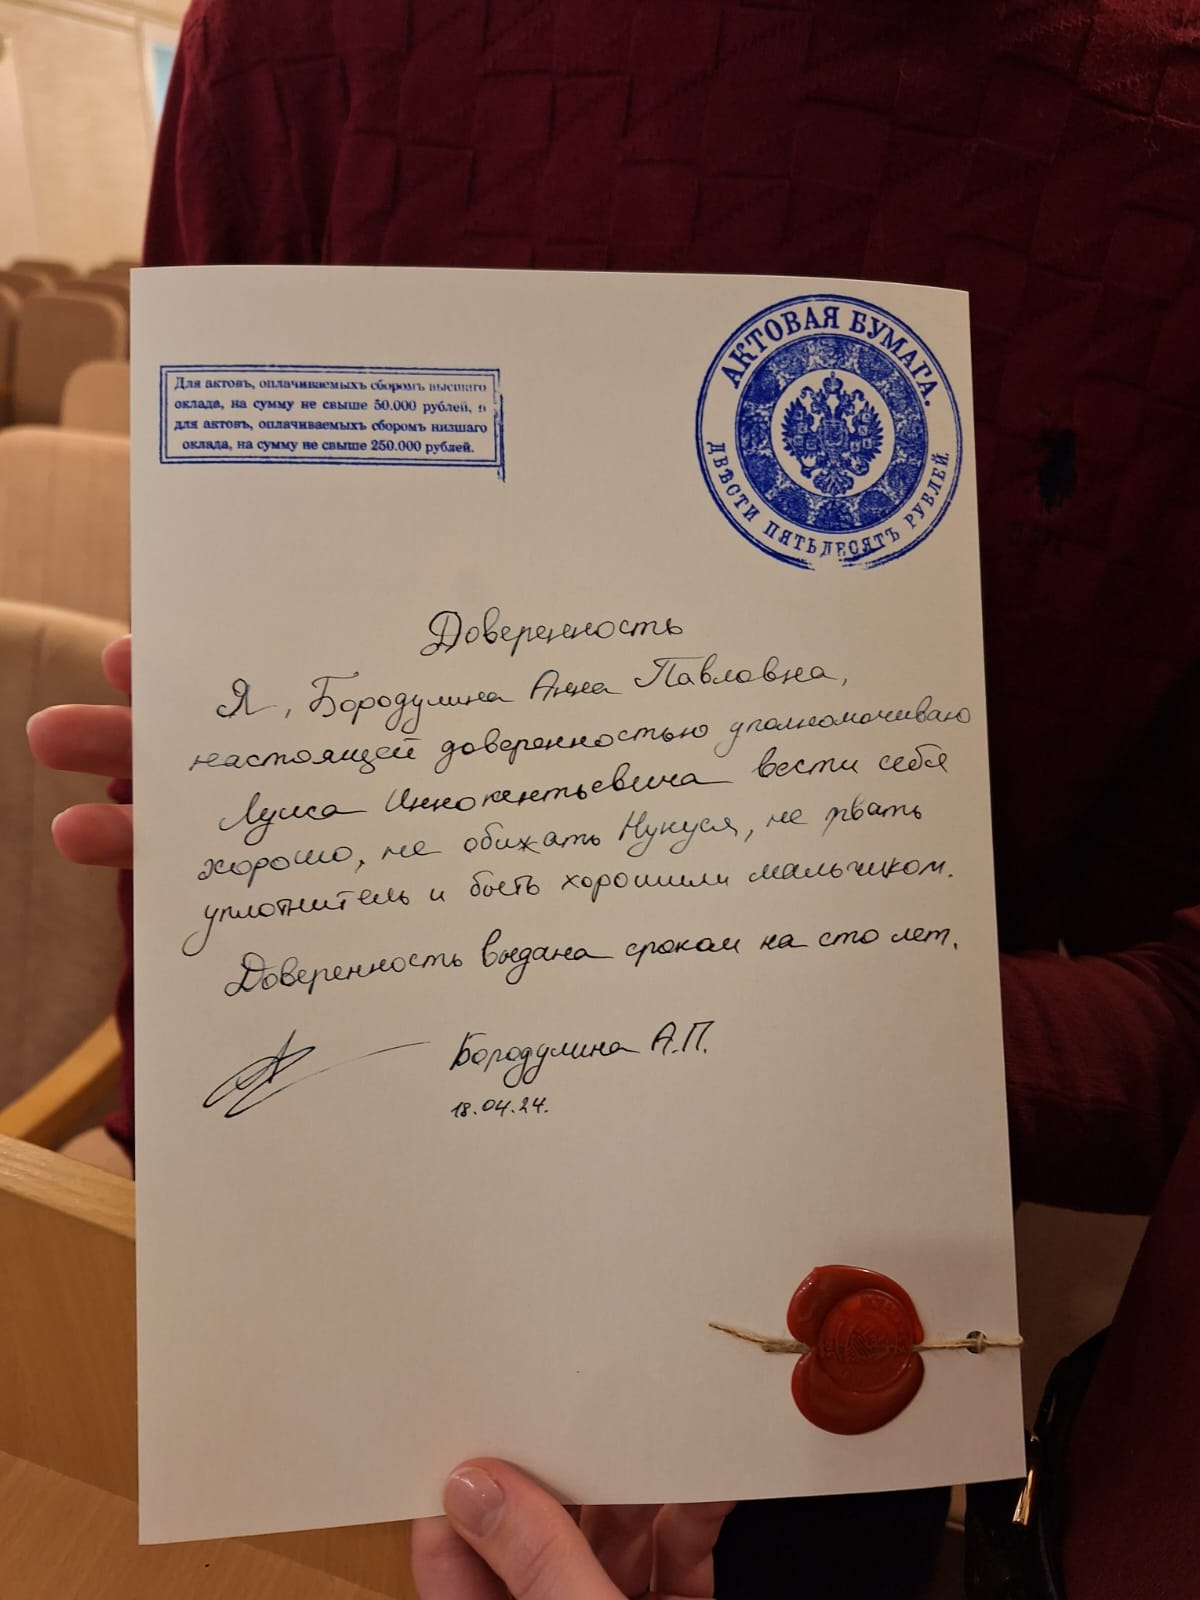 Для актовъ, оплачиваемыхъ сборомъ высшаго
оклада, на сумму не свыше 50.000 рублей, и
для актовъ, оплачиваемыхъ сборомъ низшаго
оклада, на сумму не свыше 250.000 рублей.
АКТОВАЯ БУМАГА.
ДВѢСТИ ПЯТЬДЕСЯТЪ РУБЛЕЙ.
Доверенность
Я, Бородулина Анна Павловна,
настоящей доверенностью уполномочиваю
Луиса Иннокентьевича вести себя
хорошо, не обижать Нукуся, не рвать
уплотнитель и быть хорошим мальчиком.
Доверенность выдана сроком на сто лет.
Бородулина А.П.
18.04.24.